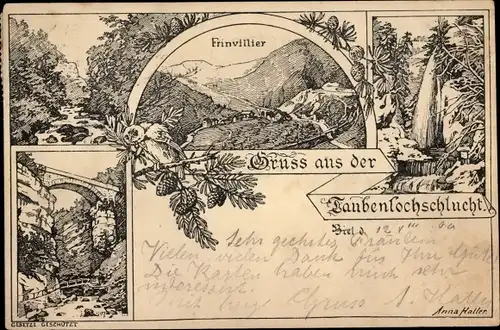 Frinvillier
Gruss aus der
Taubenlochschlucht.
Biel d. 12 VIII
Sehr geehrtes Fräulein
Vielen, vielen Dank für Ihr
Die Karten haben mich sehr
interessiert.
Gruss A. Haller
Anna Haller.
GESETZL GESCHÜTZT